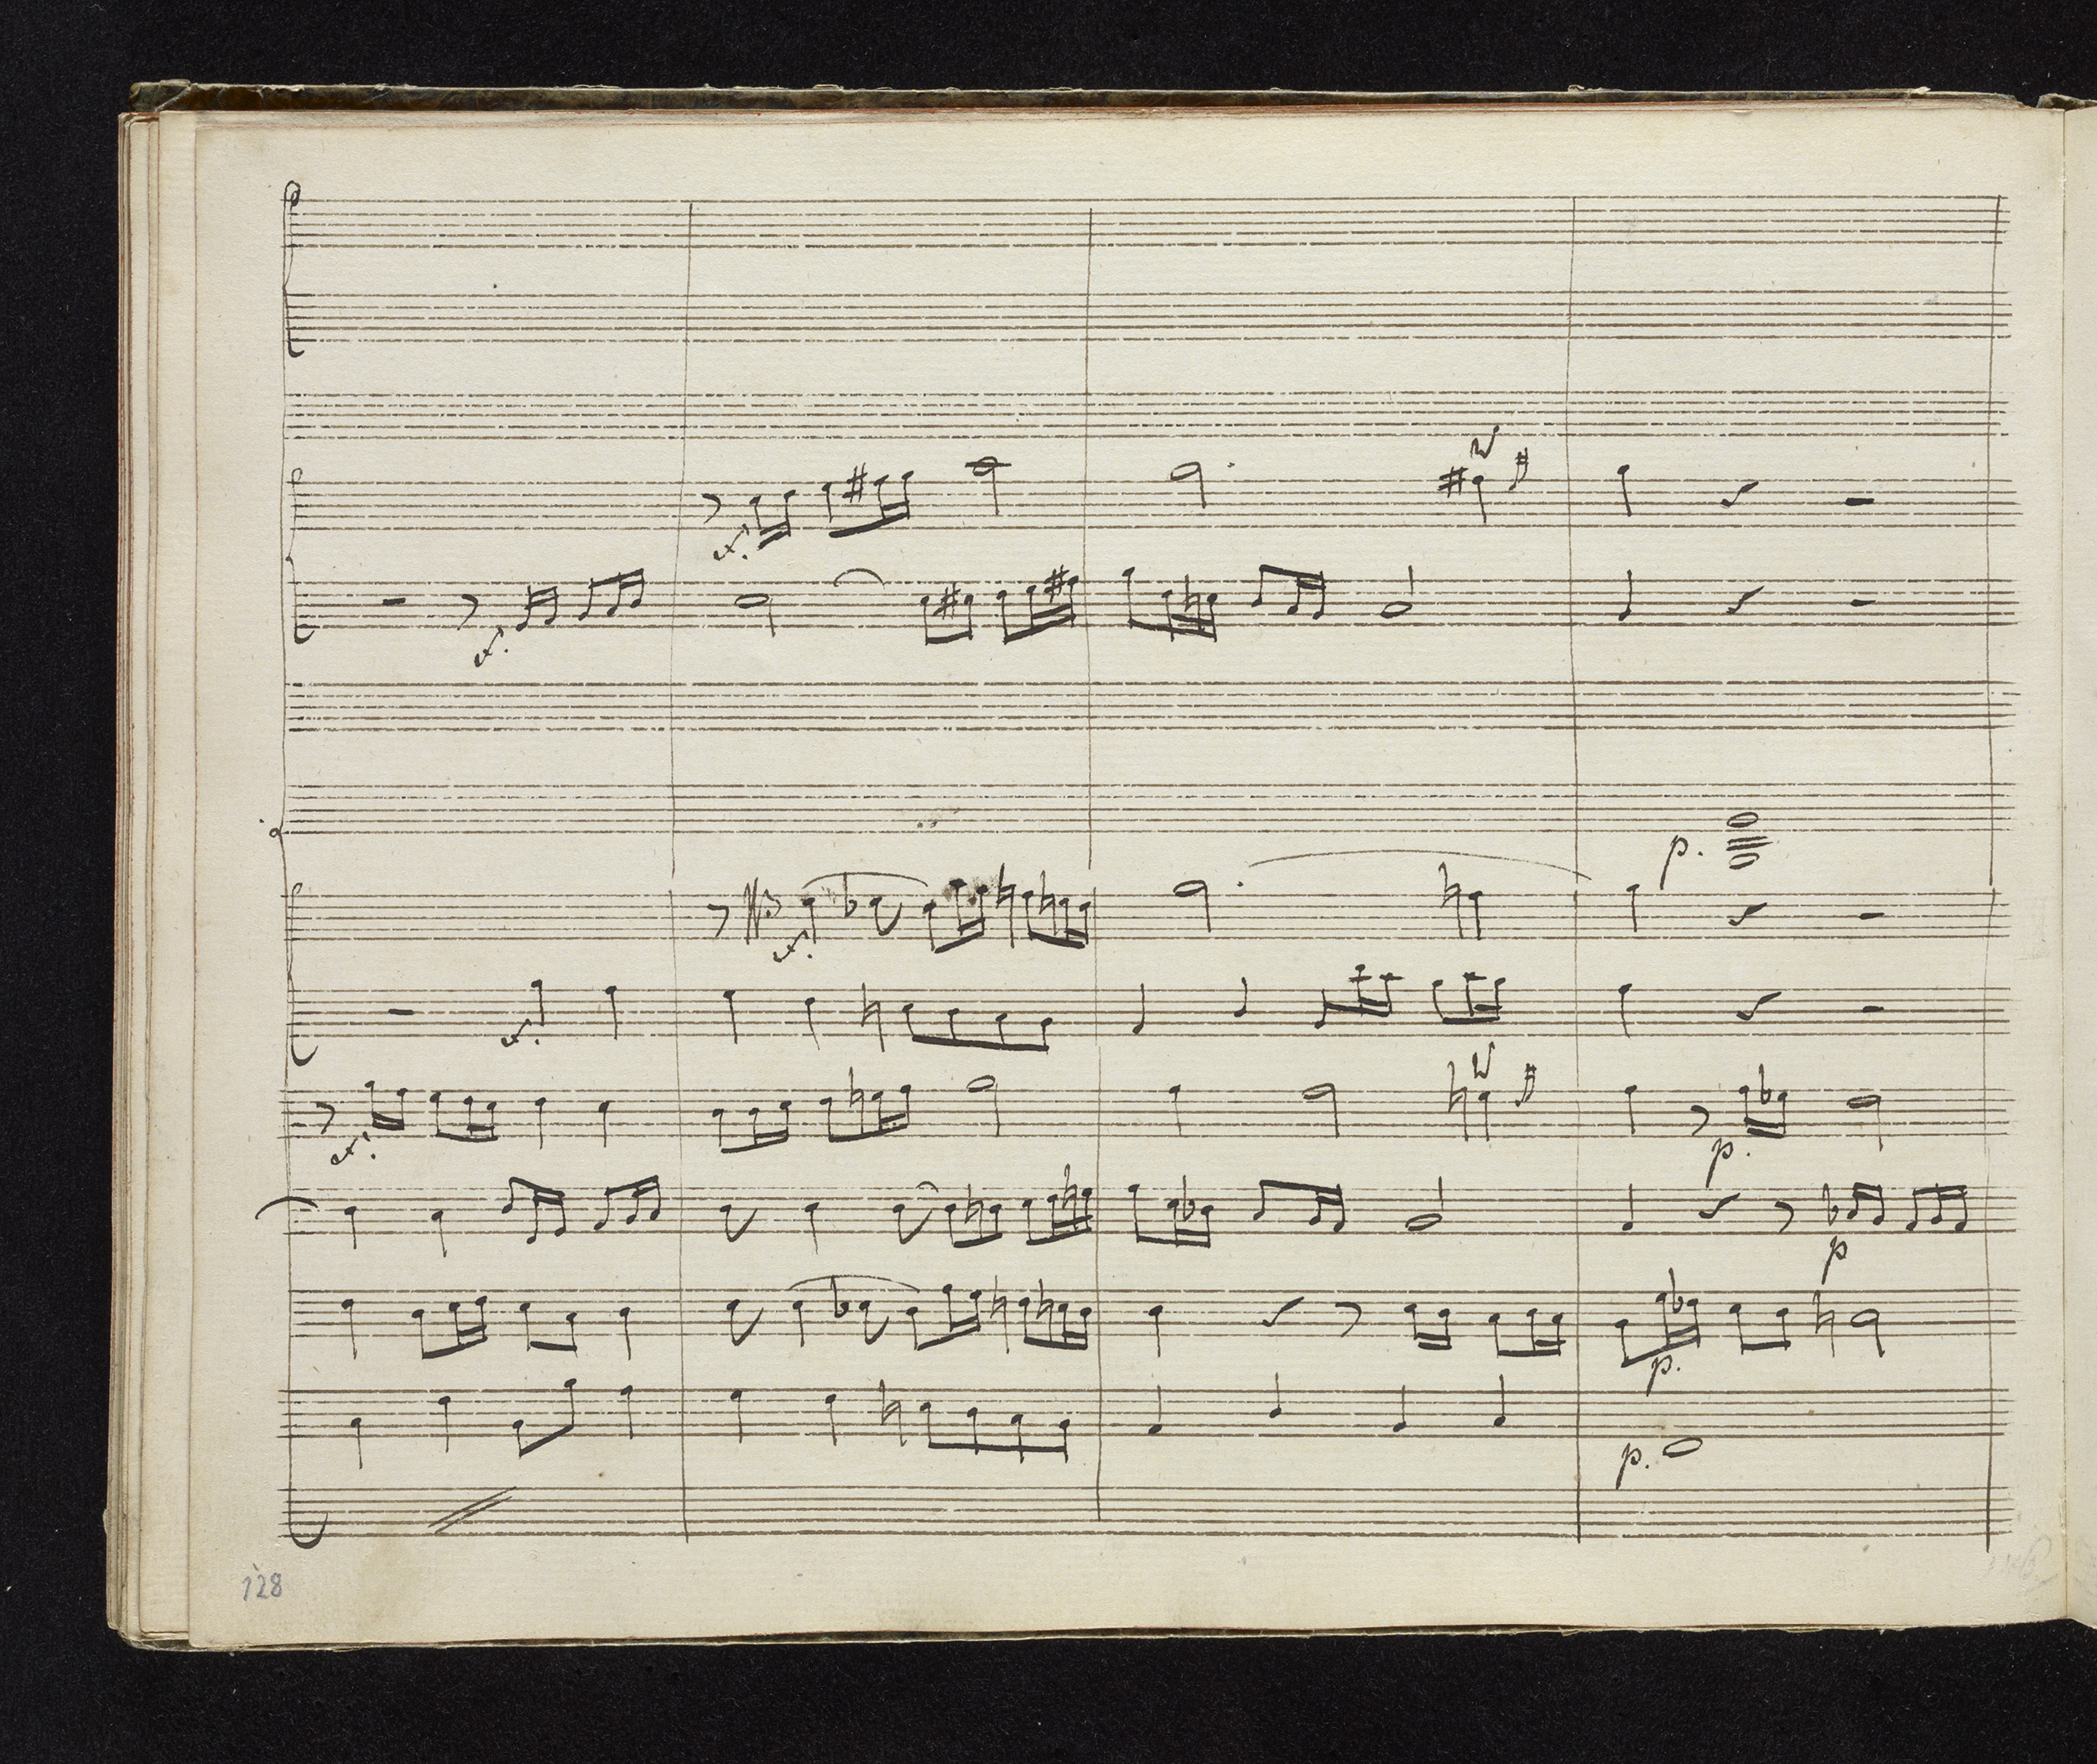 f.
f.
p.
f.
f.
f.
p.
p
p.
p.
128